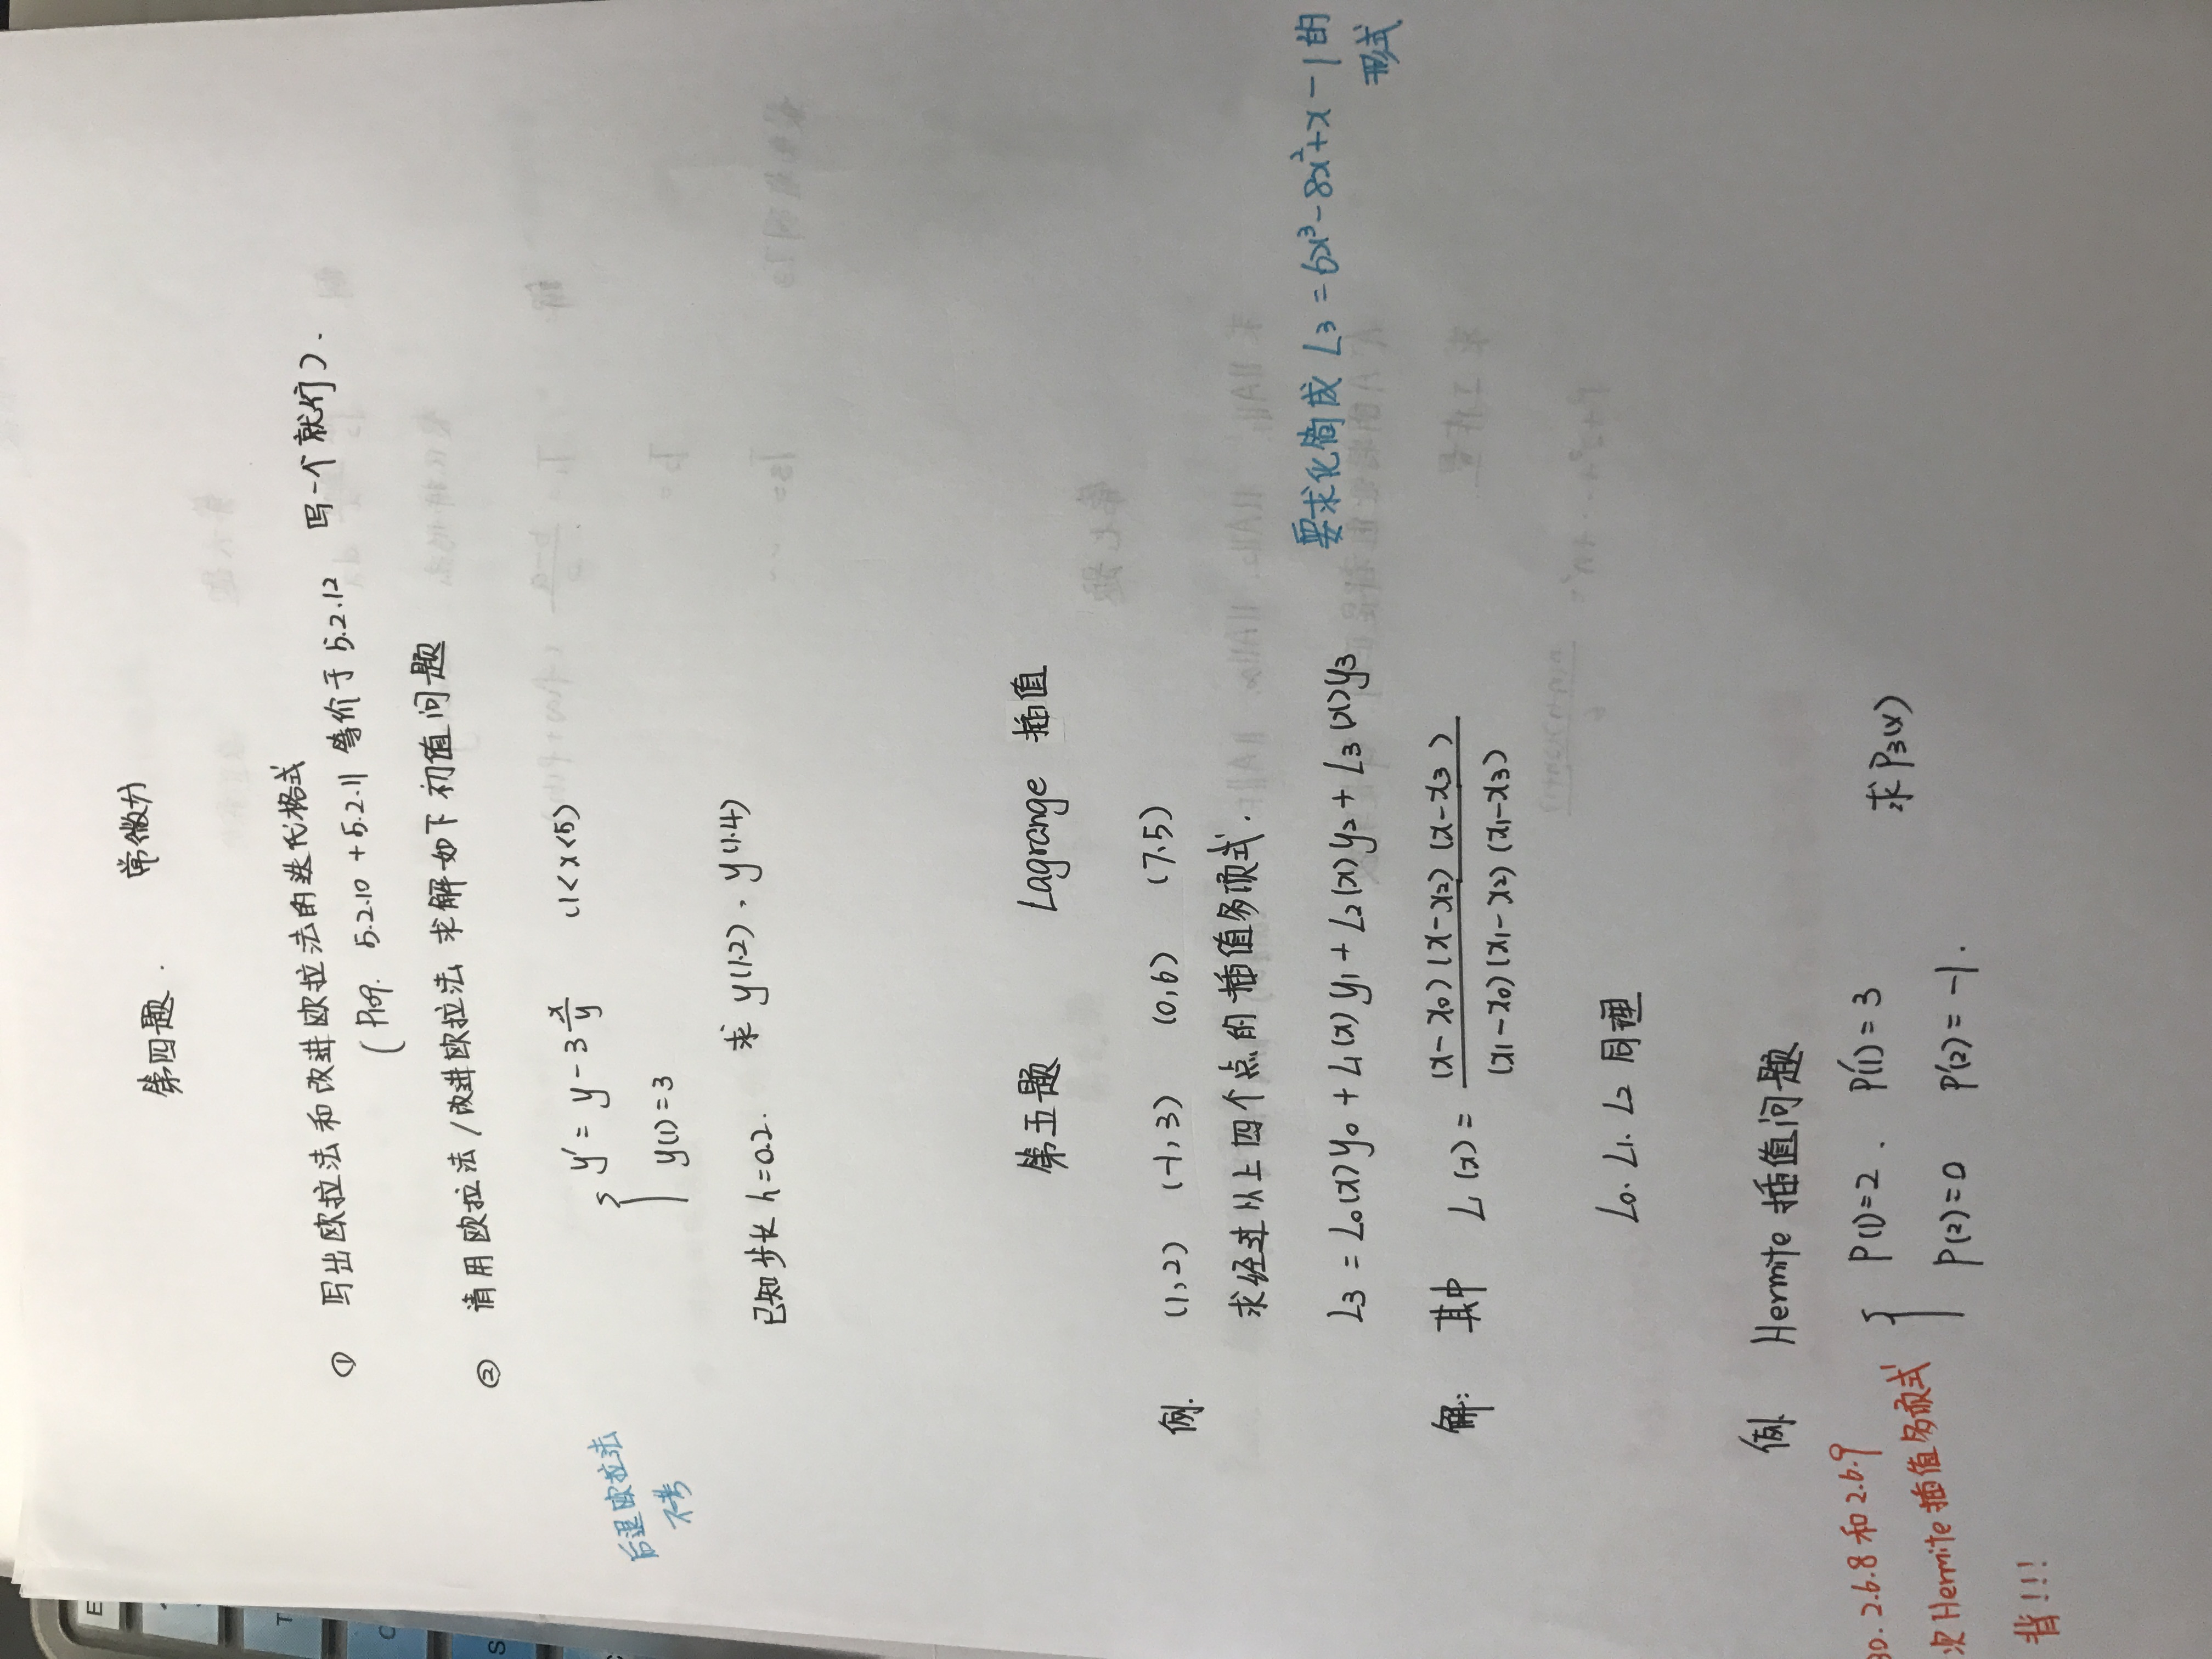 第四题. 常微分
① 写出欧拉法和改进欧拉法的迭代格式
(P109. 5.2.10 + 5.2.11 等价于 5.2.12 写一个就行).
② 请用欧拉法/改进欧拉法 求解如下初值问题
y' = y - 3 x/y (1<x<5)
y(1) = 3
后退欧拉法
不考
已知步长 h=0.2. 求 y(1.2), y(1.4)
第五题 Lagrange 插值
例. (1,2) (-1,3) (0,6) (7,5)
求经过以上四个点的插值多项式.
L3 = L0(x)y0 + L1(x)y1 + L2(x)y2 + L3(x)y3
要求化简成 L3 = 6x³-8x²+x-1 的
形式
解: 其中 L1(x) = (x-x0)(x-x2)(x-x3) / (x1-x0)(x1-x2)(x1-x3)
L0. L1. L2 同理
例. Hermite 插值问题
30. 2.6.8 和 2.6.9
次 Hermite 插值多项式
背!!!
P(1)=2. P'(1)=3
P(2)=0 P'(2)=-1.
求 P3(x)